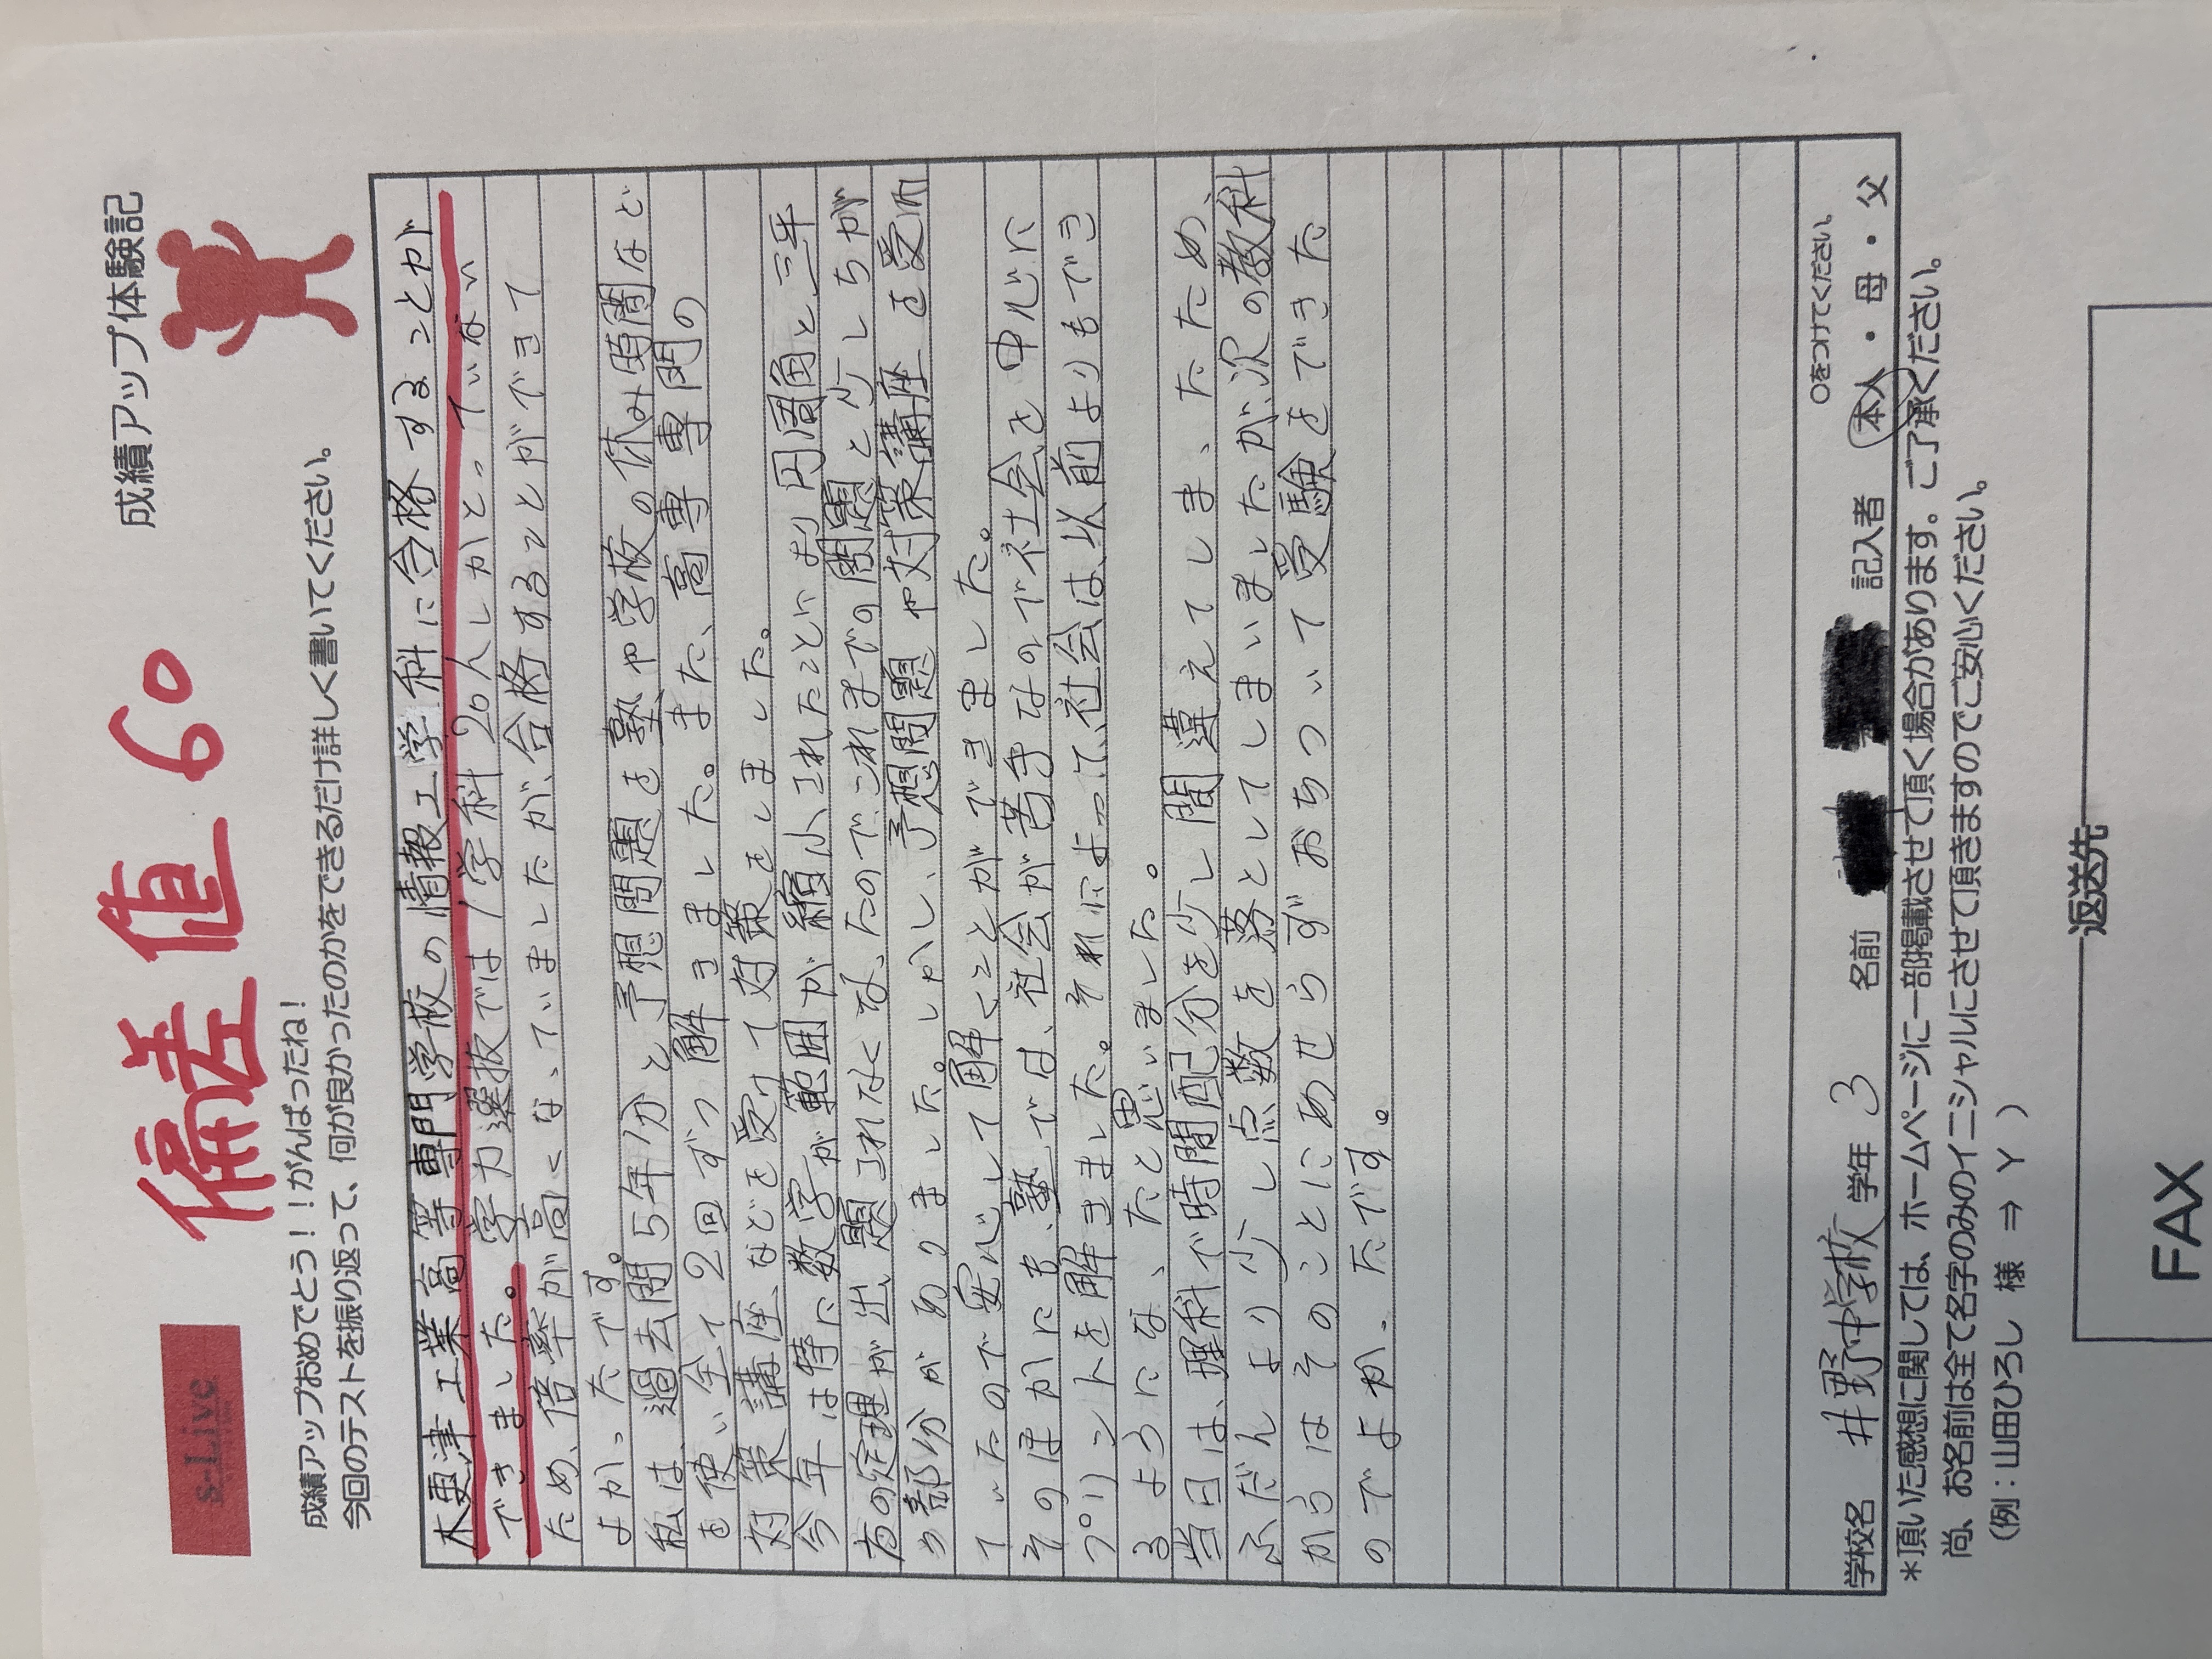 偏差値60
s-Live
成績アップ体験記
成績アップおめでとう！！がんばったね！
今回のテストを振り返って、何が良かったのかをできるだけ詳しく書いてください。
木更津工業高等専門学校の情報工学科に合格することが
できました。学力選抜では1学科20人しかとっていない
ため、倍率が高くなっていましたが、合格することができて
よかったです。
私は、過去問5年分と予想問題を塾や学校の休み時間など
を使い全て2回ずつ解きました。また、高専専門の
対策講座などを受けて対策をしました。
今年は特に数学が範囲が縮小されたことにより円周角と三平
方の定理が出題されなくなったのでこれまでの問題と少しちが
う部分がありました。しかし、予想問題や対策講座を受け
ていたので安心して解くことができました。
そのほかにも、塾では、社会が苦手なので社会を中心に
プリントを解きました。それによって、社会は、以前よりもでき
るようになったと思いました。
当日は、理科で時間配分を少し間違えてしまったため、
ふだんより少し点数を落としてしまいましたが、次の教科
からはそのことにあせらずおちついて受験をできた
のでよかったです。
学校名 井野中学校 学年 3 名前 記入者 本人・母・父
○をつけてください。
＊頂いた感想に関しては、ホームページに一部掲載させて頂く場合があります。ご了承ください。
尚、お名前は全て名字のみのイニシャルにさせて頂きますのでご安心ください。
（例：山田ひろし 様 ⇒ Y ）
返送先
FAX